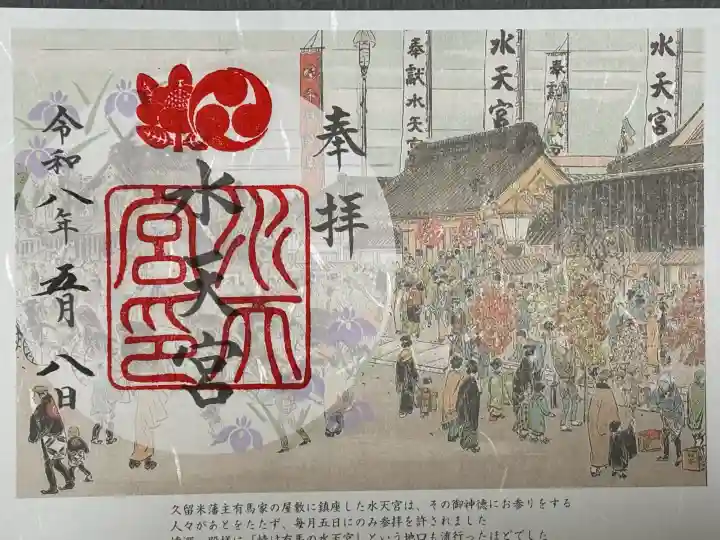 奉拝
水天宮
水天宮印
令和八年五月八日
奉献水天宮
水天宮
奉献
水天宮
久留米藩主有馬家の屋敷に鎮座した水天宮は、その御神徳にお参りをする
人々があとをたたず、毎月五日にのみ参拝を許されました